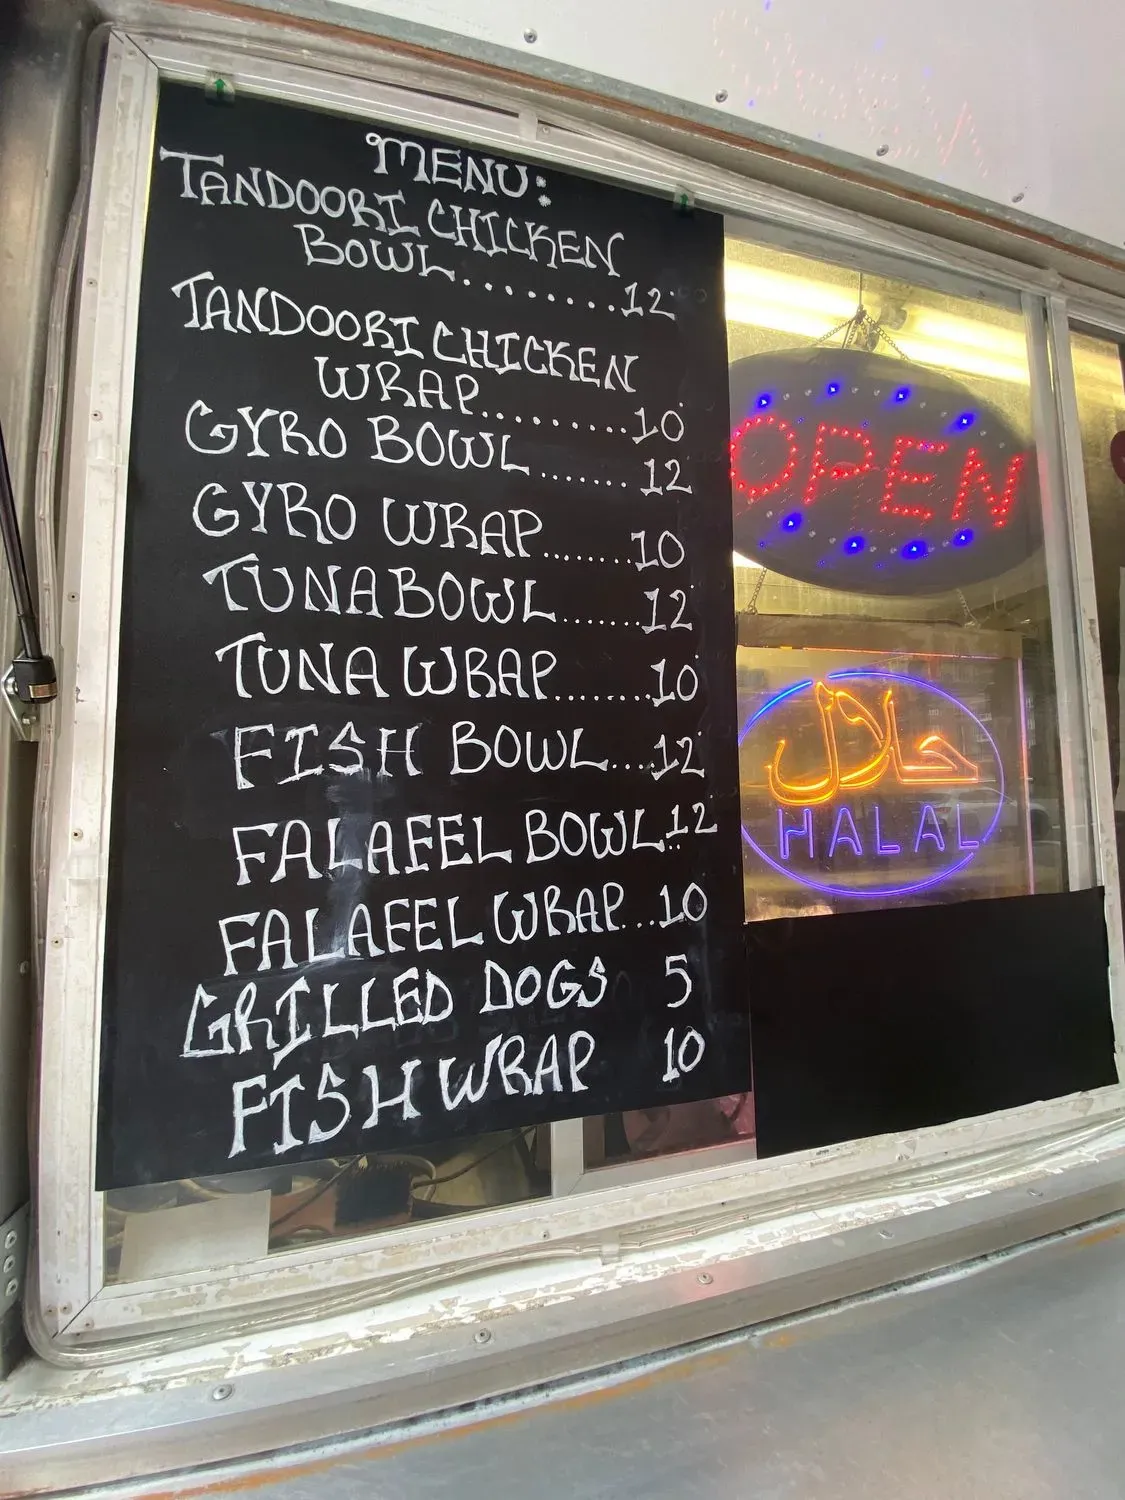 MENU:
TANDOORI CHICKEN
BOWL.........12
TANDOORI CHICKEN
WRAP.........10
GYRO BOWL.......12
GYRO WRAP.......10
TUNA BOWL.......12
TUNA WRAP.......10
FISH BOWL....12
FALAFEL BOWL..12
FALAFEL WRAP...10
GRILLED DOGS 5
FISH WRAP 10
OPEN
حلال
HALAL